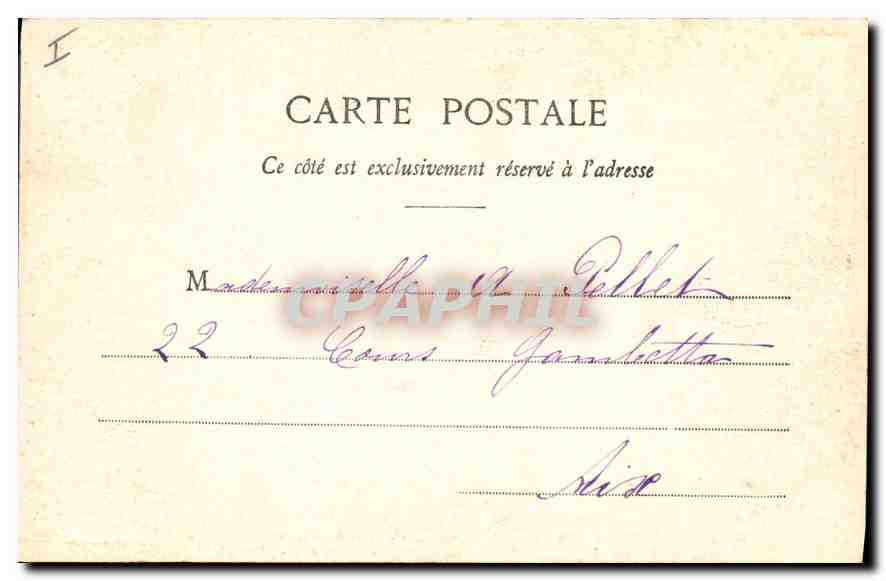 I
CARTE POSTALE
Ce côté est exclusivement réservé à l'adresse
Mademoiselle A Pellet
CPAPHIL
22 Cours Gambetta
Aix